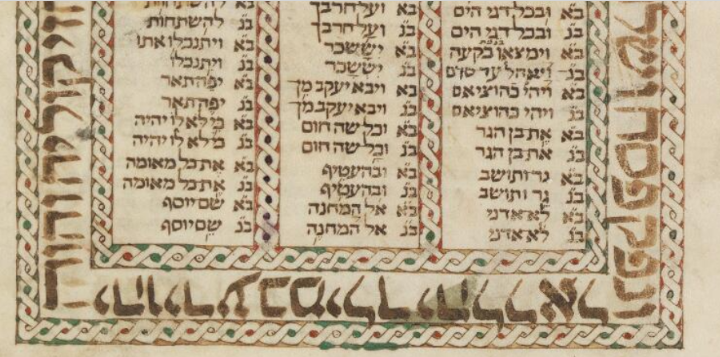 בא ובכל דגי הים
בנ ובכל דגי הים
בא וימצאו בקעה
בנ ויאהל עד סדם
בא ויהי כהוציאם
בנ ויהי כהוציאם
בא את בן הגר
בנ את בן הגר
בא גר ותושב
בנ גר ותושב
בא לא אדני
בנ לא אדני
בא ועל חרבך
בנ ועל חרבך
בא יששכר
בנ יששכר
בא ויבא יעקב מן
בנ ויבא יעקב מן
בא וכל שה חום
בנ וכל שה חום
בא ובהעטיף
בנ ובהעטיף
בא אל המחנה
בנ אל המחנה
להשתחות
בנ להשתחות
בא ויתנכלו אתו
בנ ויתנכלו
בא יפת תאר
בנ יפת תאר
בא כי לא לו יהיה
בנ כי לא לו יהיה
בא את כל מאומה
בנ את כל מאומה
בא שם יוסף
בנ שם יוסף